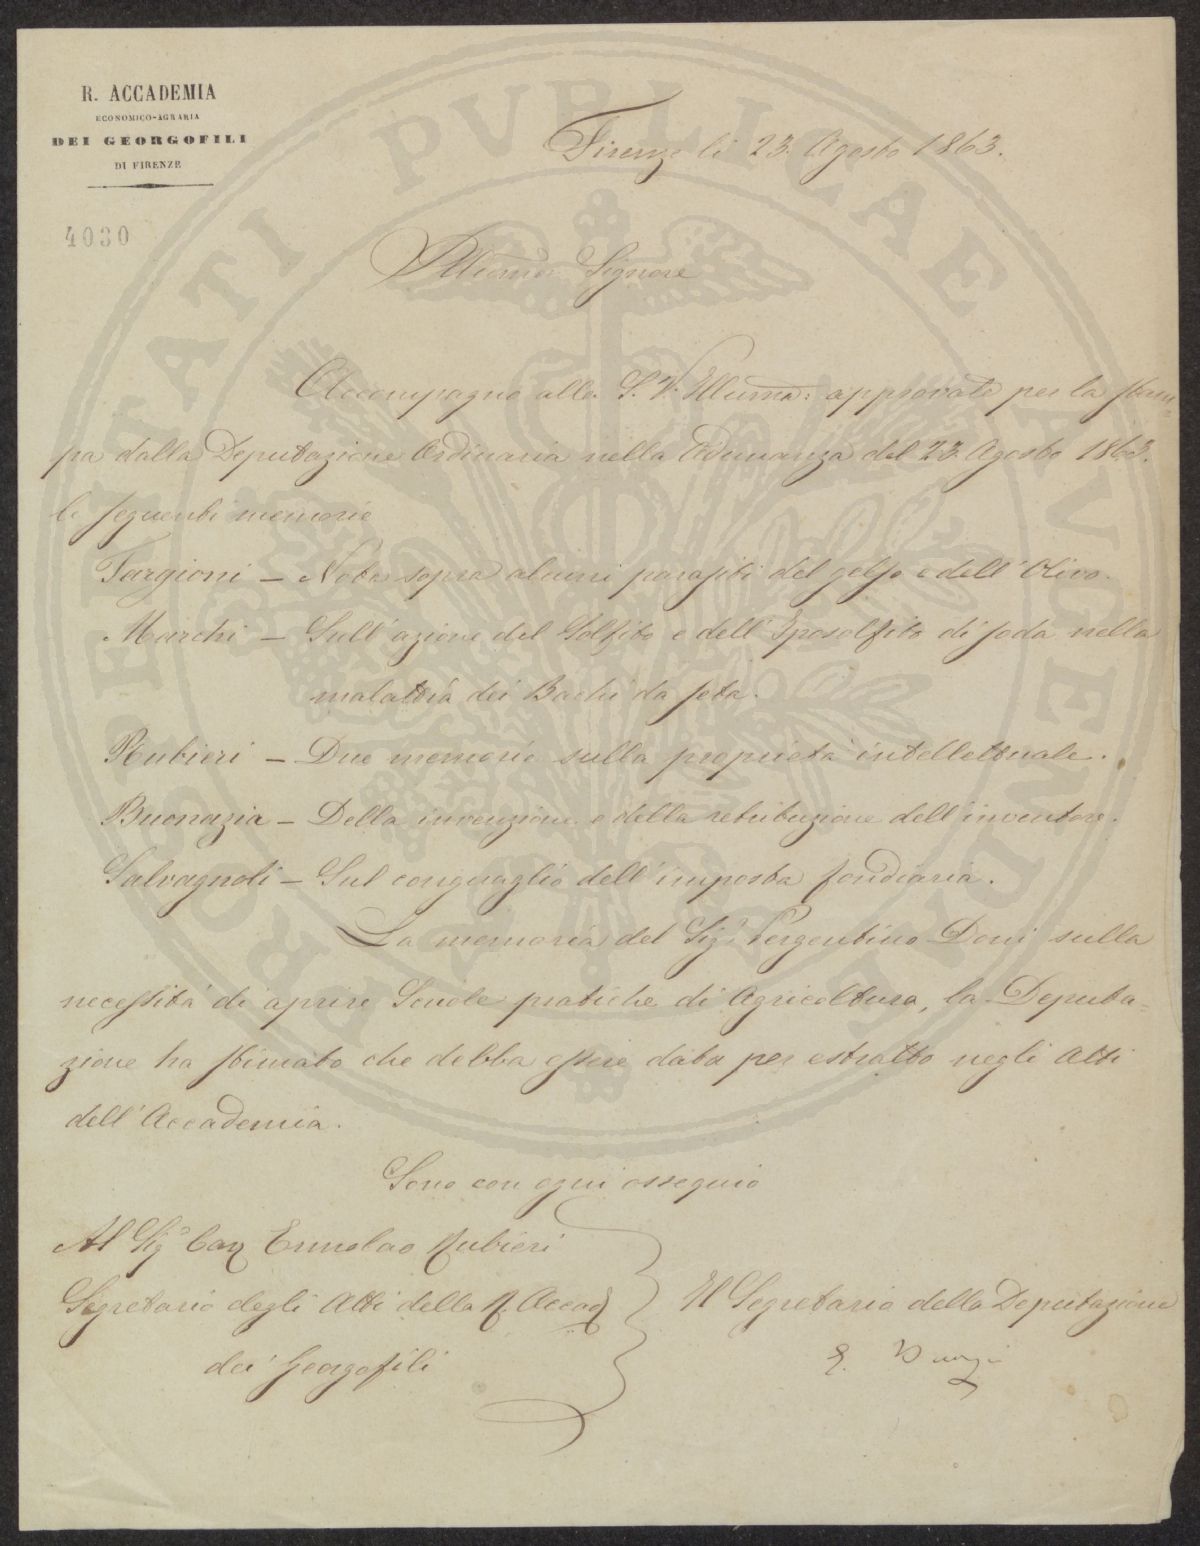 R. ACCADEMIA
ECONOMICO-AGRARIA
DEI GEORGOFILI
DI FIRENZE
Firenze li 23. Agosto 1863.
4030
PROSPERITATI PVBLICAE AVGENDAE
Illmo Signore
Accompagno alla S. V. Illuma: approvate per la stam=
pa dalla Deputazione Ordinaria nella Adunanza del 23. Agosto 1863.
le seguenti memorie
Targioni – Nota sopra alcuni parasiti del gelso e dell'Olivo.
Marchi – Sull'azione del Solfito e dell'Iposolfito di soda nella
malattia dei Bachi da seta.
Rubieri – Due memorie sulla proprietà intellettuale.
Buonazia – Della invenzione e della retribuzione dell'inventore.
Salvagnoli – Sul conguaglio dell'imposta fondiaria.
La memoria del Sigr. Pergentino Doni sulla
necessità di aprire Scuole pratiche di Agricoltura, la Deputa=
zione ha stimato che debba essere data per estratto negli Atti
dell'Accademia.
Sono con ogni ossequio
Al Sigr Cav Ermolao Rubieri
Segretario degli Atti della R. Accad
dei Georgofili
Il Segretario della Deputazione